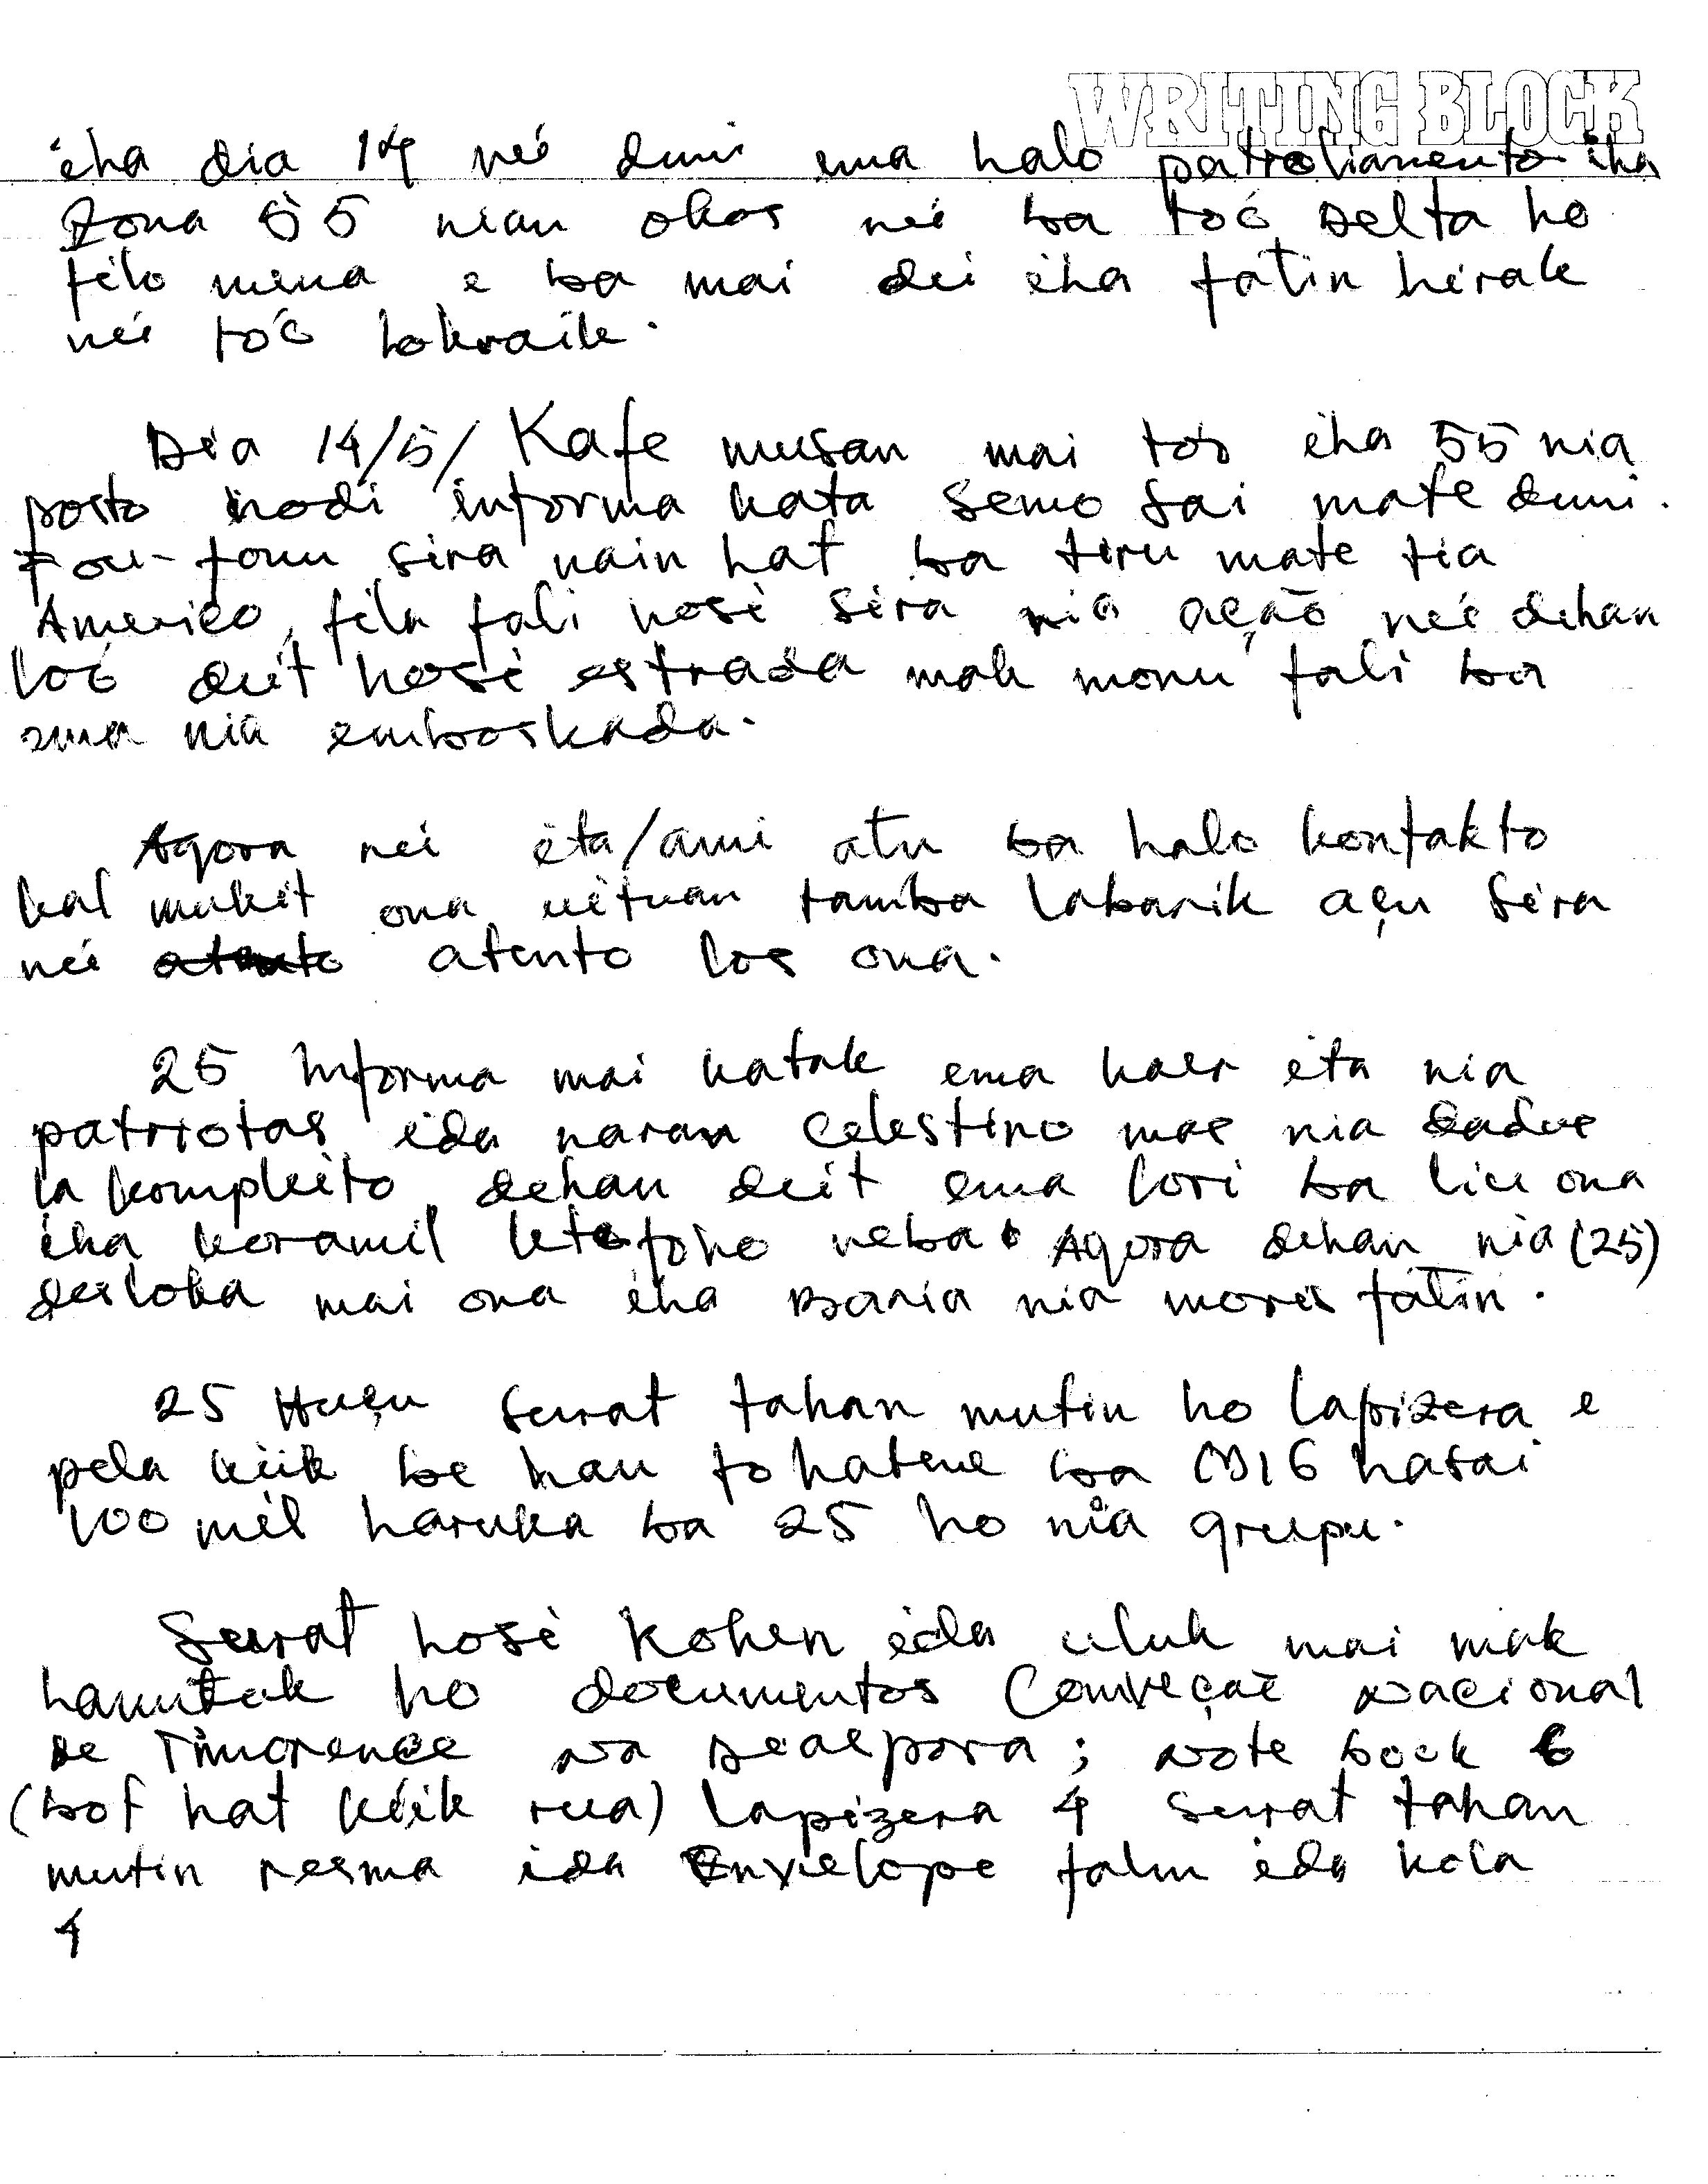 WRITING BLOCK
iha dia 14 neé duni ema halo patroliamento iha
Zona 55 nian okos neé ba toó Delta ho
filo mina e ba mai dei iha fatin hirak
neé toó lokraik.
Dia 14/5/ Kafe musan mai toó iha 55 nia
posto hodi informa kata Semo Sai mate duni.
Fou-foun sira nain hat ba tiru mate tia
Americo, fila fali hosi sira nia ação neé dehan
loó deit hosi estrada mak monu fali ba
ema nia emboskada.
Agora nei ita/ami atu ba halo kontakto
kal mukit ona uituan tamba labarik açu sira
neé atento los ona.
25 Informa mai katak ema kaer ita nia
patriotas ida naran Celestino mas nia dadus
la kompleito dehan deit ema lori ba liu ona
iha koramil letefoho neba. Agora dehan nia (25)
desloka mai ona iha Baria nia moris fatin.
25 Huçu surat tahan mutin ho lapizera e
pela kiik be hau fo hatene ba M16 hasai
100 mil haruka ba 25 ho nia grupu.
Surat hosi Kohen ida uluk mai mak
hamutuk ho documentos Conveçaõ Nacional
De Timorense Na Deaspora; Note book 6
(bot hat kiik rua) lapizera 4 surat tahan
mutin resma ida Envielope falun ida kola
4